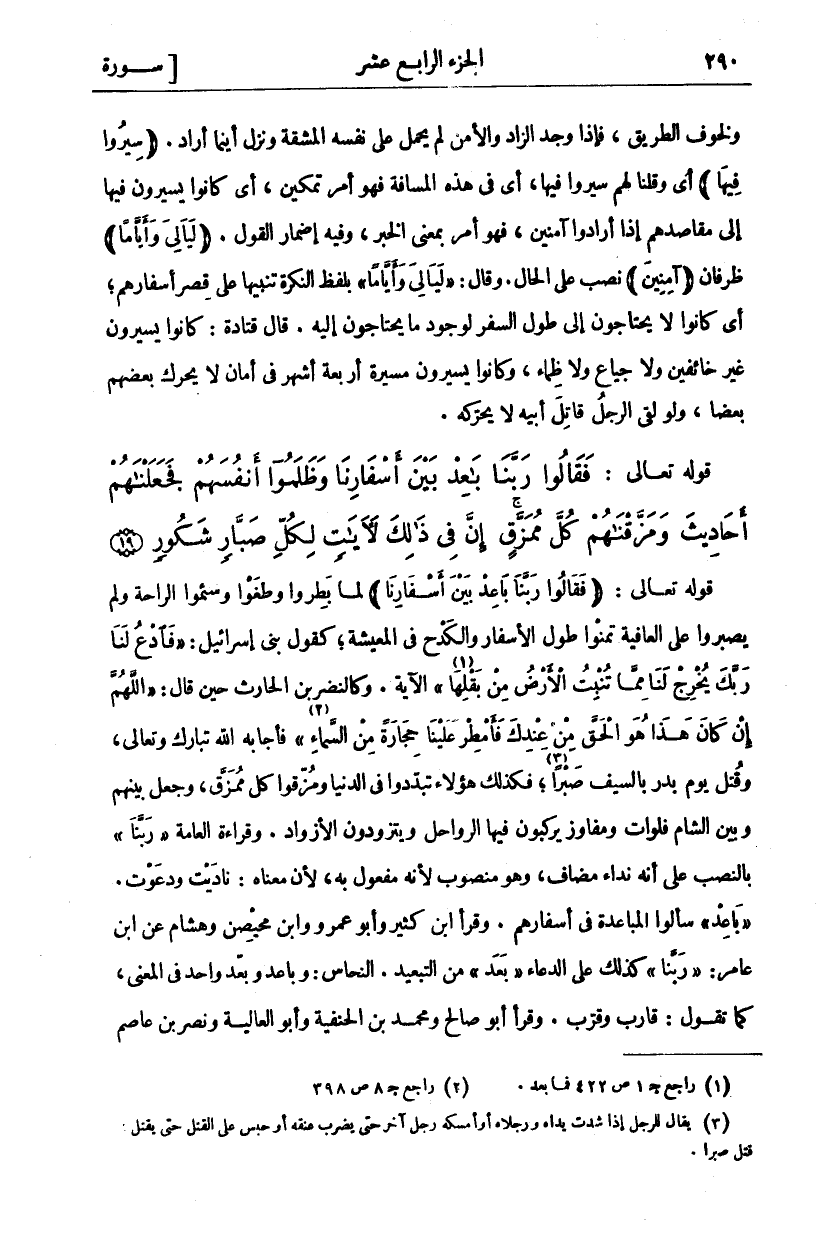 ٢٩٠ الجزء الرابع عشر [ ســورة
ولخوف الطريق ، فإذا وجد الزاد والأمن لم يحمل على نفسه المشقة ونزل أينما أراد . ﴿ سِيرُوا
فِيهَا ﴾ أى وقلنا لهم سيروا فيها، أى فى هذه المسافة فهو أمر تمكين ، أى كانوا يسيرون فيها
إلى مقاصدهم إذا أرادوا آمنين ، فهو أمر بمعنى الخبر ، وفيه إضمار القول . ﴿ لَيَالِىَ وَأَيَّامًا ﴾
ظرفان ﴿ آمِنِينَ ﴾ نصب على الحال. وقال: «لَيَالِىَ وَأَيَّامًا» بلفظ النكرة تنبيها على قصر أسفارهم؛
أى كانوا لا يحتاجون إلى طول السفر لوجود ما يحتاجون إليه . قال قتادة : كانوا يسيرون
غير خائفين ولا جياع ولا ظماء ، وكانوا يسيرون مسيرة أربعة أشهر فى أمان لا يحرك بعضهم
بعضا ، ولو لقى الرجلُ قاتِلَ أبيه لا يحرّكه .
قوله تعــالى : فَقَالُوا رَبَّنَا بَـٰعِدْ بَيْنَ أَسْفَارِنَا وَظَلَمُوٓا أَنفُسَهُمْ فَجَعَلْنَـٰهُمْ
أَحَادِيثَ وَمَزَّقْنَـٰهُمْ كُلَّ مُمَزَّقٍ ۚ إِنَّ فِى ذَٰلِكَ لَآيَـٰتٍ لِّكُلِّ صَبَّارٍ شَكُورٍ ﴿١٩﴾
قوله تعــالى : ﴿ فَقَالُوا رَبَّنَا بَاعِدْ بَيْنَ أَسْــفَارِنَا ﴾ لمــا بَطِروا وطغَوْا وسئموا الراحة ولم
يصبروا على العافية تمنّوا طول الأسفار والكَدْح فى المعيشة؛ كقول بنى إسرائيل: «فَادْعُ لَنَا
رَبَّكَ يُخْرِجْ لَنَا مِمَّا تُنْبِتُ الْأَرْضُ مِنْ بَقْلِهَا (١)» الآية . وكالنضر بن الحارث حين قال: «اللَّهُمَّ
إِنْ كَانَ هَــذَا هُوَ الْحَقَّ مِنْ عِنْدِكَ فَأَمْطِرْ عَلَيْنَا حِجَارَةً مِنَ السَّمَاءِ (٢)» فأجابه الله تبارك وتعالى،
وقُتل يوم بدر بالسيف صَبْرًا (٣)؛ فكذلك هؤلاء تبدّدوا فى الدنيا ومُزّقوا كل مُمَزَّق، وجعل بينهم
وبين الشام فلوات ومفاوز يركبون فيها الرواحل ويتزودون الأزواد . وقراءة العامة « رَبَّنَا »
بالنصب على أنه نداء مضاف، وهو منصوب لأنه مفعول به، لأن معناه : نادَيْت ودعَوْت.
«بَاعِدْ» سألوا المباعدة فى أسفارهم . وقرأ ابن كثير وأبو عمرو وابن محيْصِن وهشام عن ابن
عامر: « رَبَّنا » كذلك على الدعاء « بَعِّد » من التبعيد . النحاس: وباعد وبعّد واحد فى المعنى،
كما تقــول : قارب وقرّب . وقرأ أبو صالح ومحمــد بن الحنفية وأبو العاليــة ونصر بن عاصم
(١) راجع جـ ١ ص ٤٢٢ فــا بعد . (٢) راجع جـ ٨ ص ٣٩٨
(٣) يقال للرجل إذا شدت يداه ورجلاه أو أمسكه رجل آخر حتى يضرب عنقه أو حبس على القتل حتى يقتل :
قتل صبرا .